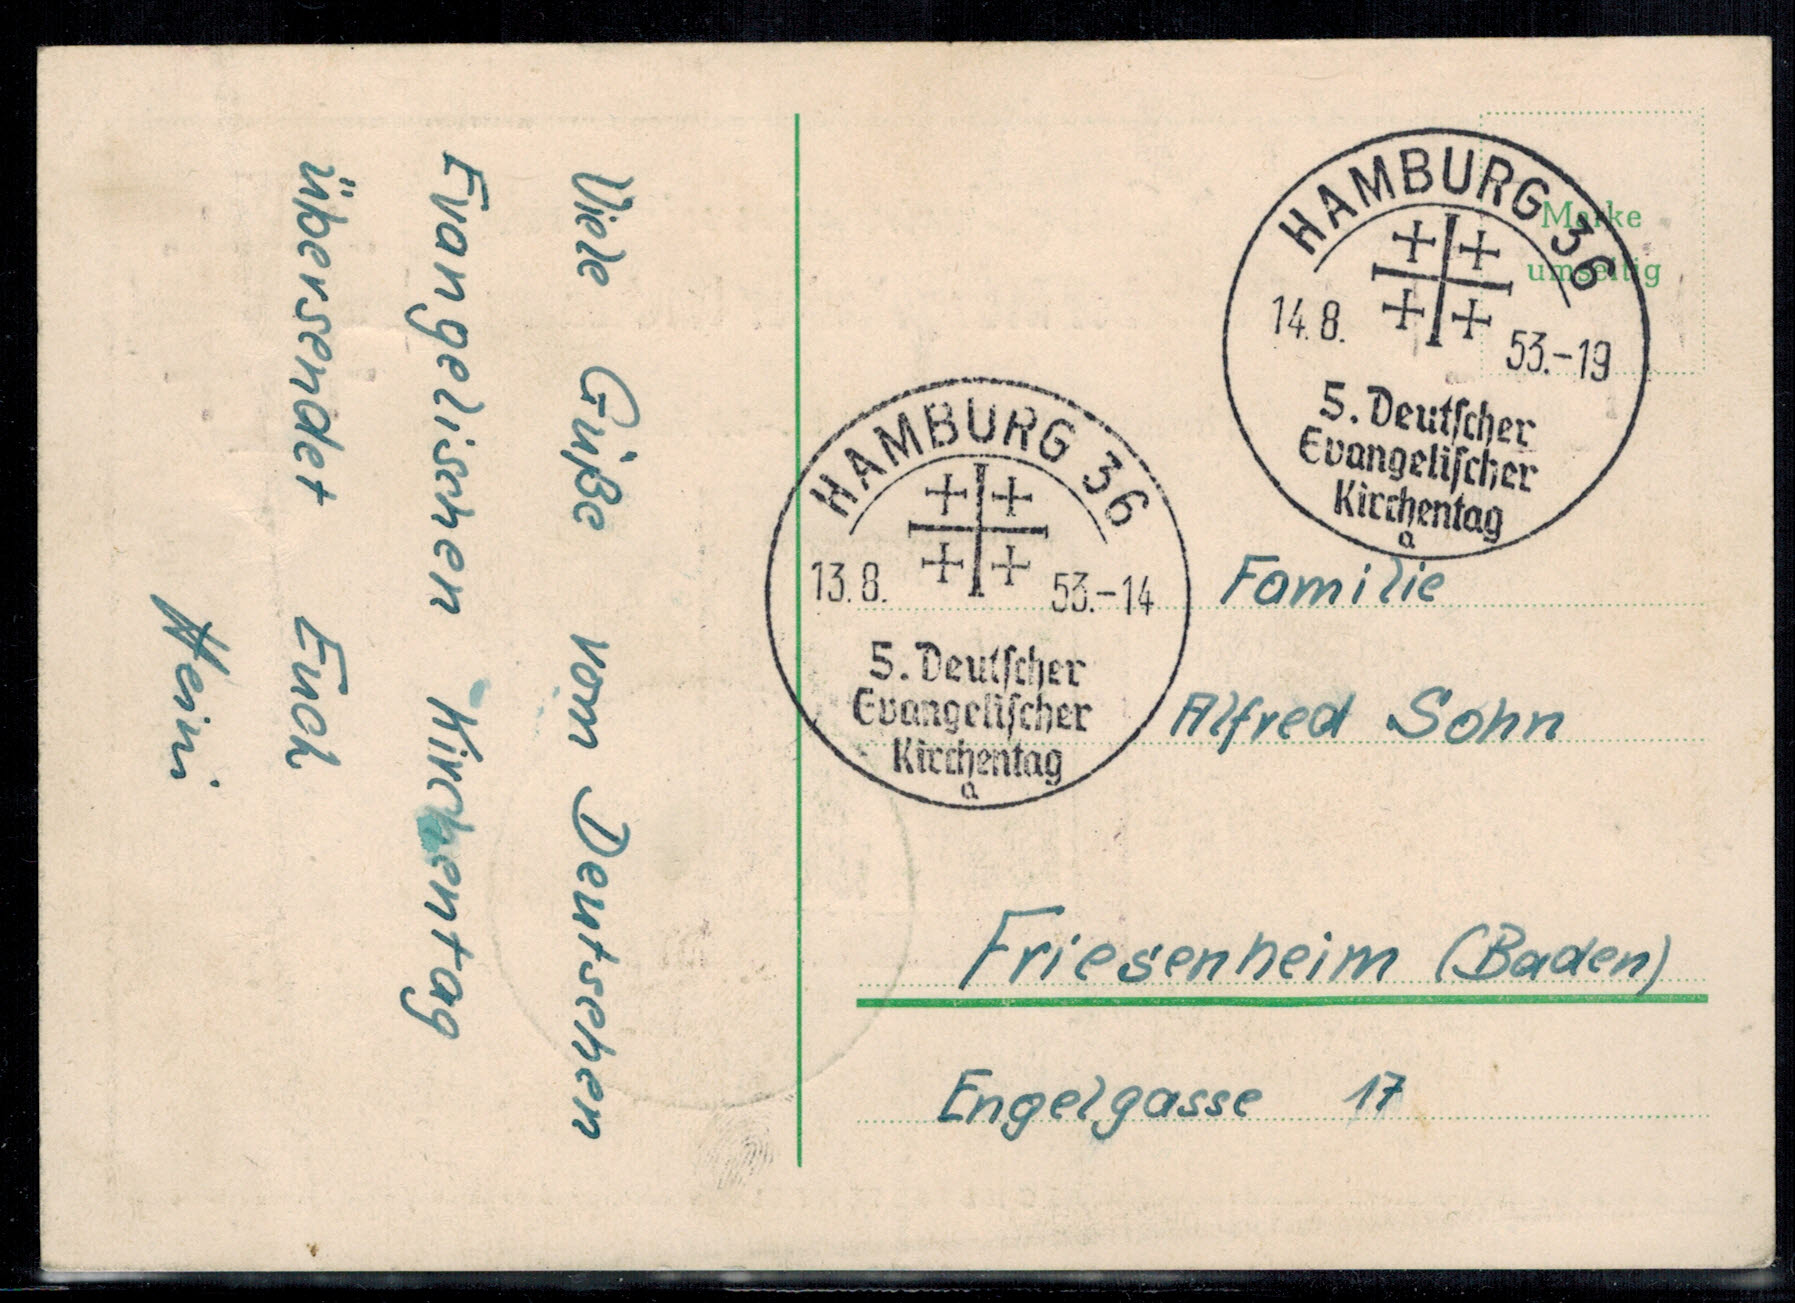 Viele Grüße vom Deutschen
Evangelischen Kirchentag
übersendet Euch
Heini
Marke
umseitig
HAMBURG 36
14.8. 53.-19
5. Deutſcher
Evangeliſcher
Kirchentag
a
HAMBURG 36
13.8. 53.-14
5. Deutſcher
Evangeliſcher
Kirchentag
a
Familie
Alfred Sohn
Friesenheim (Baden)
Engelgasse 17